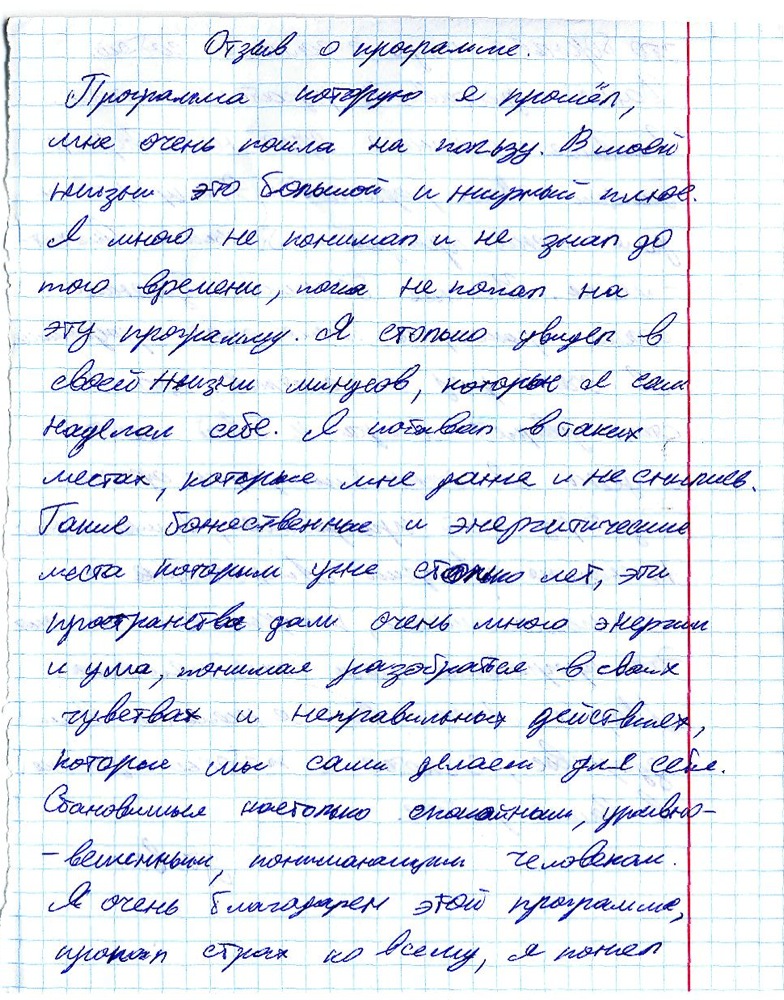 Отзыв о программе.
Программа которую я прошёл,
мне очень пошла на пользу. В моей
жизни это большой и жирный плюс.
Я много не понимал и не знал до
того времени, пока не попал на
эту программу. Я столько увидел в
своей жизни минусов, которые я сам
наделал себе. Я побывал в таких
местах, которые мне даже и не снились.
Такие божественные и энергитические
места которым уже столько лет, эти
пространства дали очень много энергии
и ума, понимая разобраться в своих
чувствах и неправильных действиях,
которые мы сами делаем для себя.
Становишься настолько спокойным, уравно-
-вешенным, понимающим человеком.
Я очень благодарен этой программе,
пропал страх ко всему, я понял